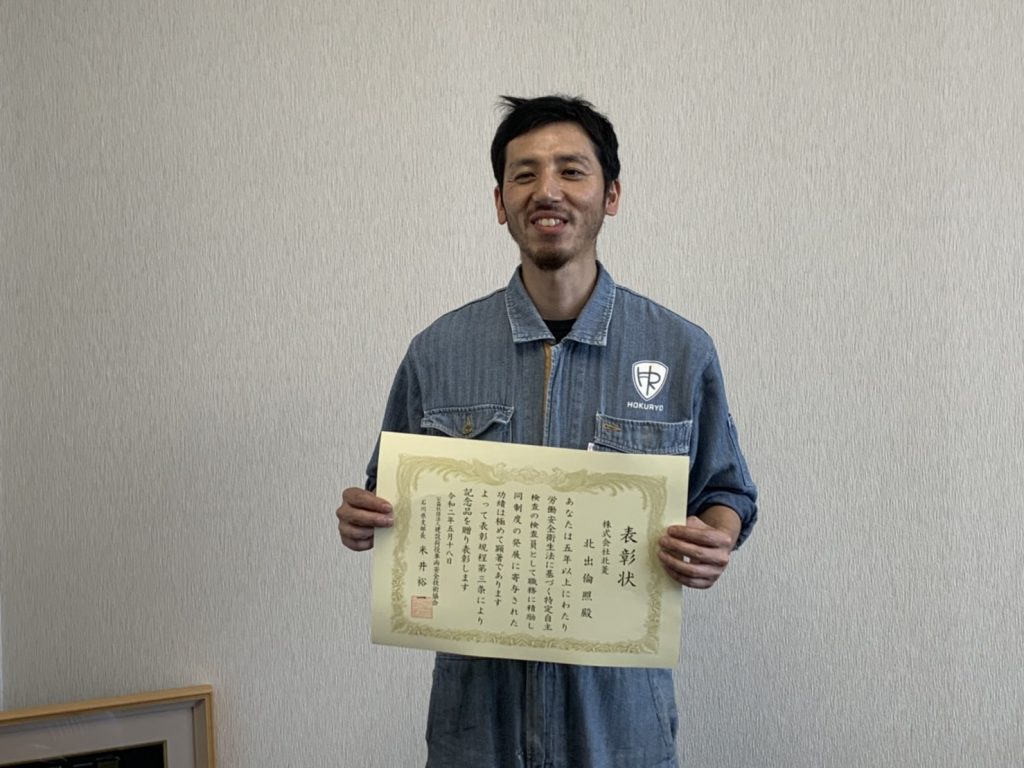 HR
HOKURYO
表彰状
株式会社北菱
北出倫照殿
あなたは五年以上にわたり
労働安全衛生法に基づく特定自主
検査の検査員として職務に精励し
同制度の発展に寄与された
功績は極めて顕著であります
よって表彰規程第三条により
記念品を贈り表彰します
令和二年五月十八日
公益社団法人建設荷役車両安全技術協会
石川県支部長 米井裕